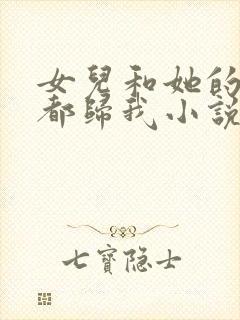 女兒和她的
都歸我小說
七寶隐士